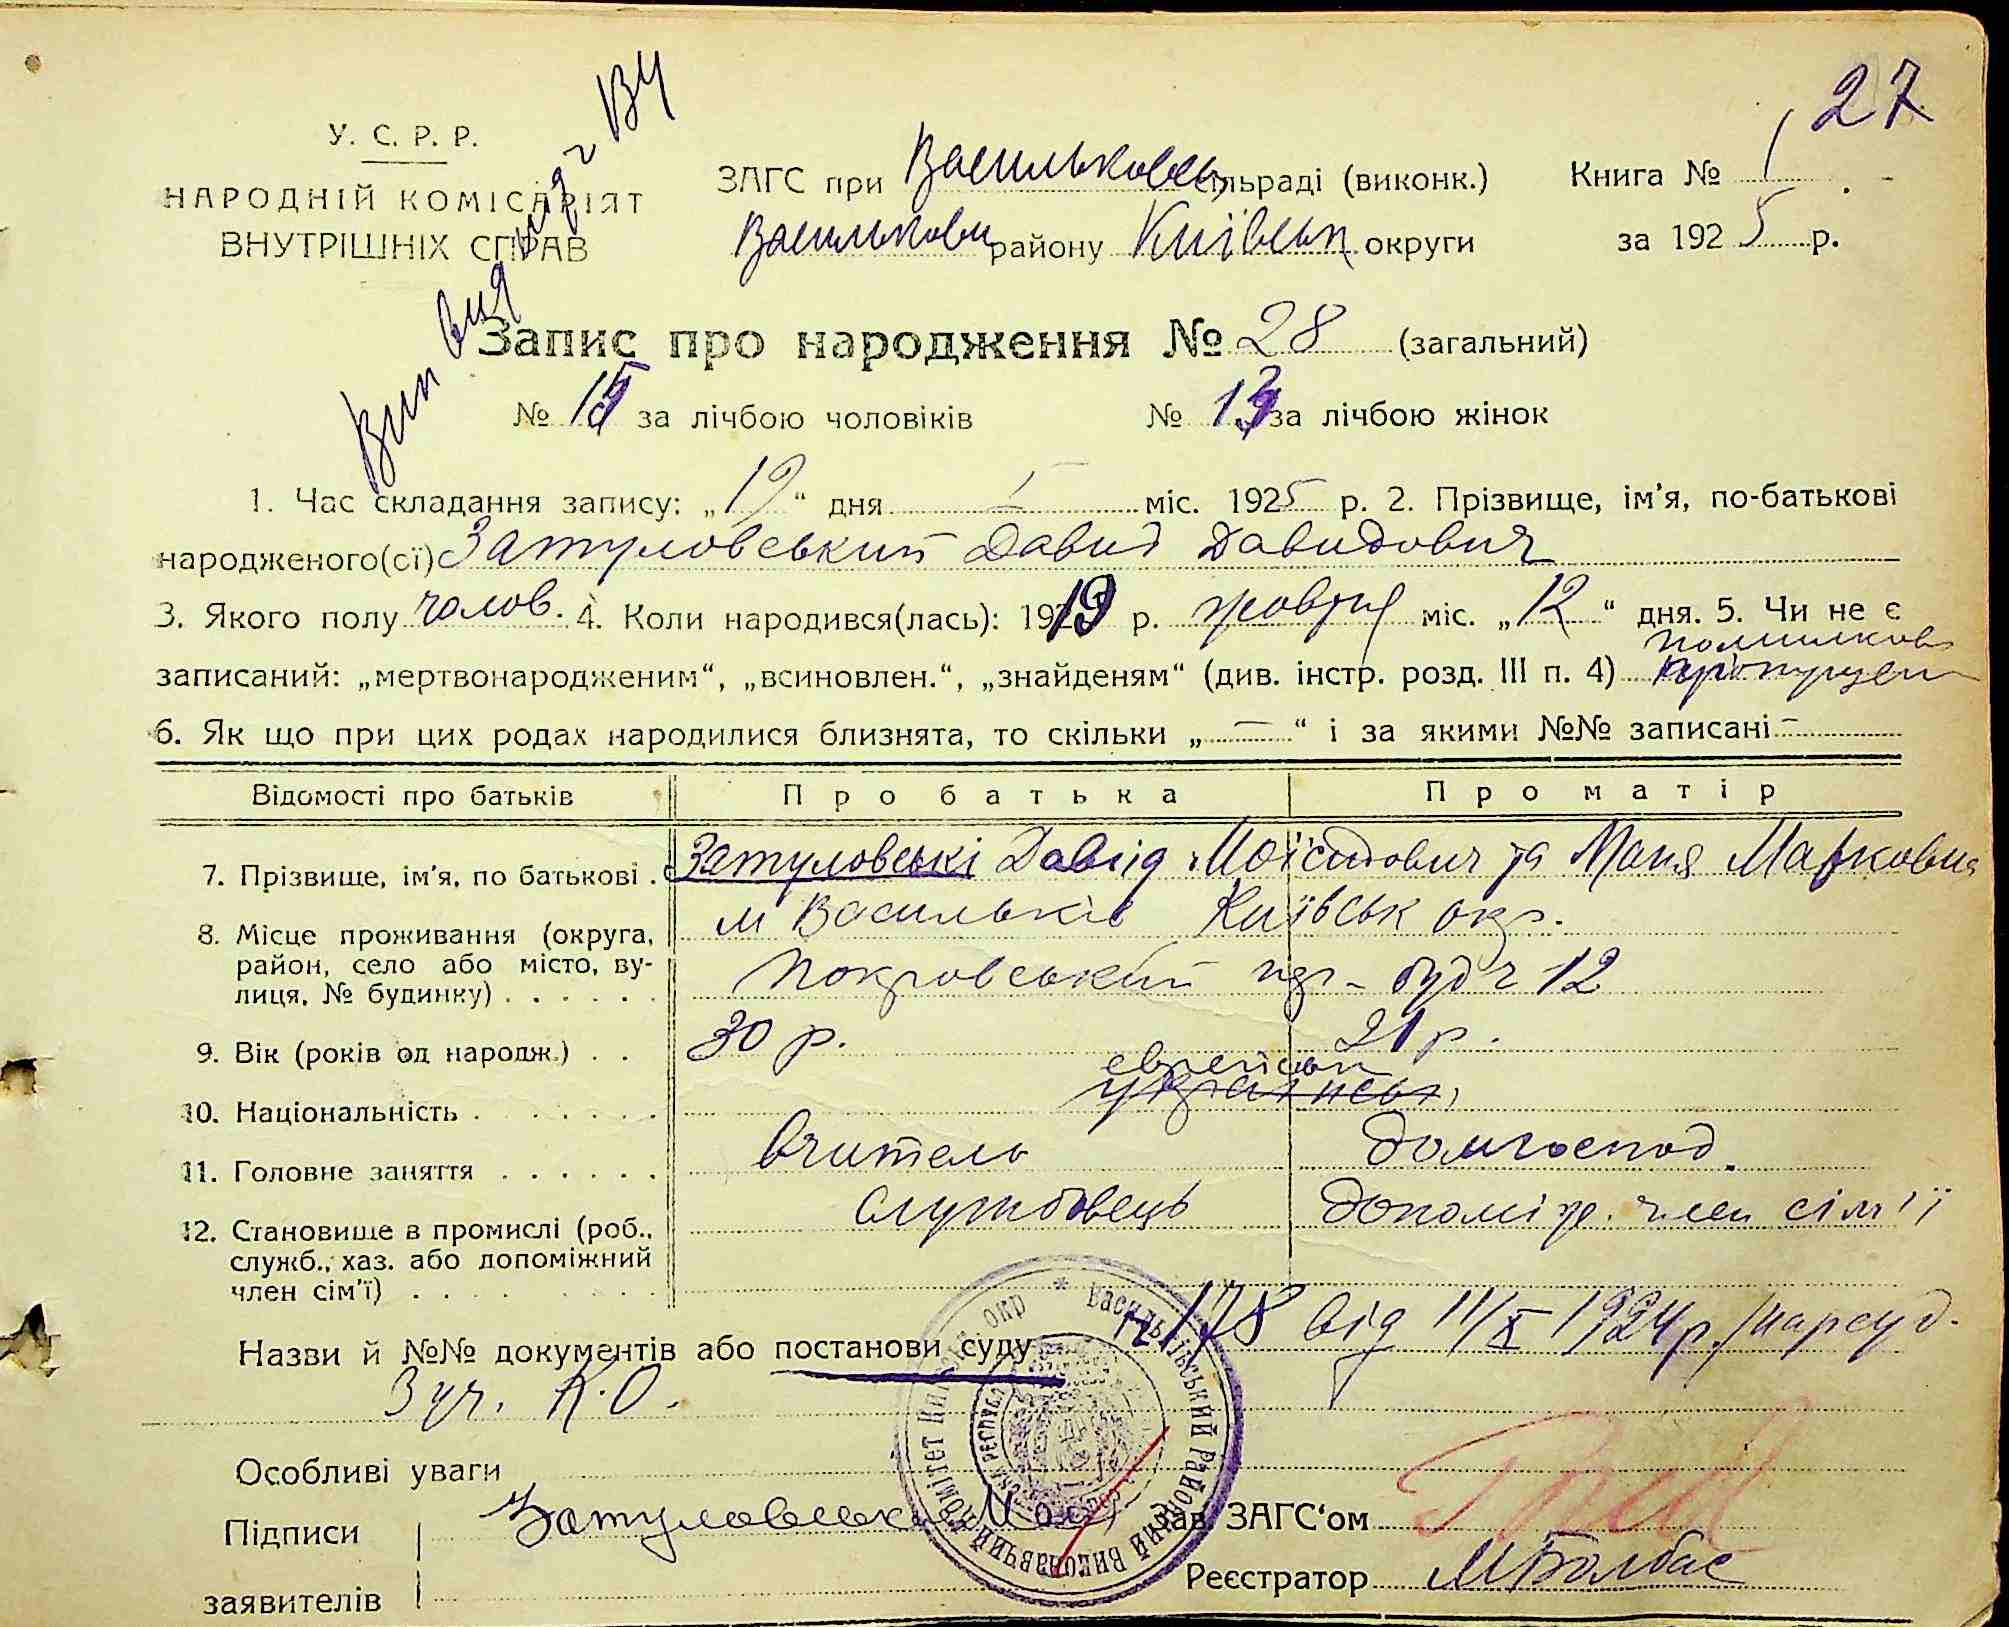 27
У. С. Р. Р.
НАРОДНІЙ КОМІСАРІЯТ
ВНУТРІШНІХ СПРАВ
ЗАГС при Васильковськ сільраді (виконк.) Книга № 1
Васильковск району Київськ округи за 1925 р.
Запис про народження № 28 (загальний)
№ 15 за лічбою чоловіків № 13 за лічбою жінок
1. Час складання запису: „19“ дня I міс. 1925 р. 2. Прізвище, ім'я, по-батькові
народженого(сї) Затуловський Давид Давидович
3. Якого полу чолов. 4. Коли народився(лась): 1919 р. жовтня міс. „12“ дня. 5. Чи не є
помилково
записаний: „мертвонародженим“, „всиновлен.“, „знайденям“ (див. інстр. розд. III п. 4) пропущен
6. Як що при цих родах народилися близнята, то скільки „—“ і за якими №№ записані —
Відомості про батьків Про батька Про матір
7. Прізвище, ім'я, по батькові . Затуловські Давід Мойсейович та Маня Марковна
8. Місце проживання (округа, район, село або місто, вулиця, № будинку) . . . . . . м Васильків Київськ окр.
Покровський буд ч 12
9. Вік (років од народж.) . . 30 р. 21 р.
єврейськ
10. Національність . . . . . . . українськ
11. Головне заняття . . . . . . вчитель домгоспод.
12. Становище в промислі (роб., служб., хаз. або допоміжний член сім'ї) . . . . . . . . службовець допоміж. член сім'ї
Назви й №№ документів або постанови суду ч 178 від 11/X 1924 р. /нарсуд.
3 уч. К.О.
Особливі уваги
Підписи Затуловська Зав. ЗАГС'ом
заявителів Реєстратор МБолбас
Васильківський Районний Виконавчий Комітет Київськ окр